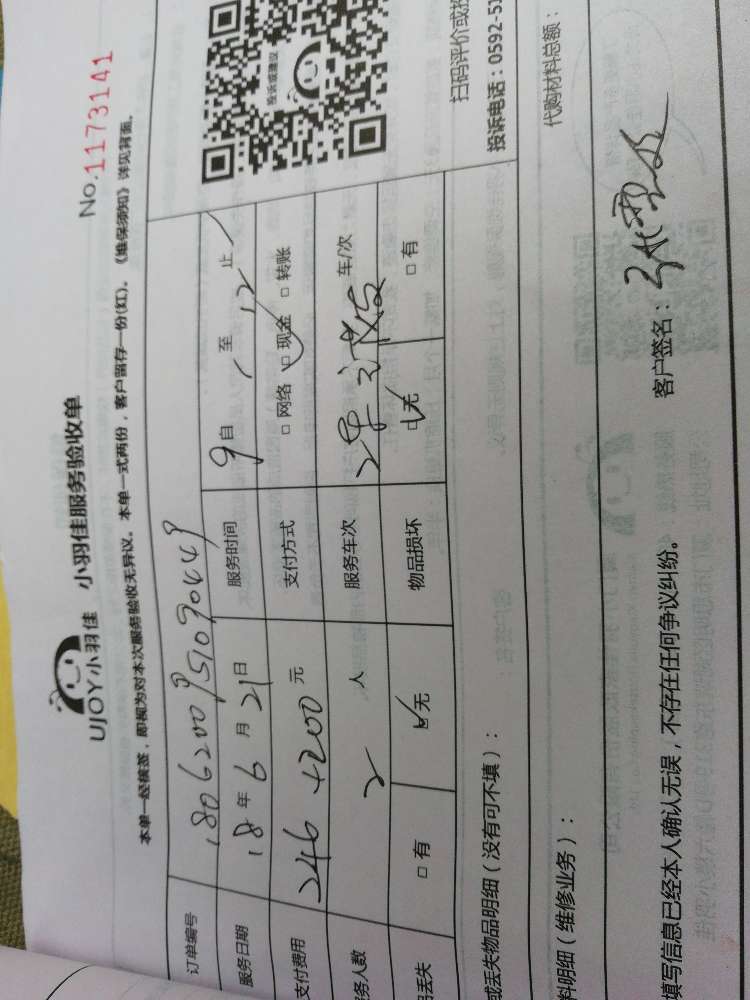 UJOY小羽佳 小羽佳服务验收单
No.1173141
本单一经核签,即视为对本次服务验收无异议。本单一式两份,客户留存一份(红)。《维保须知》详见背面。
订单编号 180620095109044
服务日期 18年6月21日 服务时间 9自 至12止
支付费用 246+200元 支付方式 □网络 □现金 □转账
务人数 2人 服务车次 车/次
品丢失 □有 □无 物品损坏 □无 □有
投诉或建议
扫码评价或投
投诉电话:0592-51
或丢失物品明细(没有可不填):
料明细(维修业务): 代购材料总额:
填写信息已经本人确认无误,不存在任何争议纠纷。 客户签名: